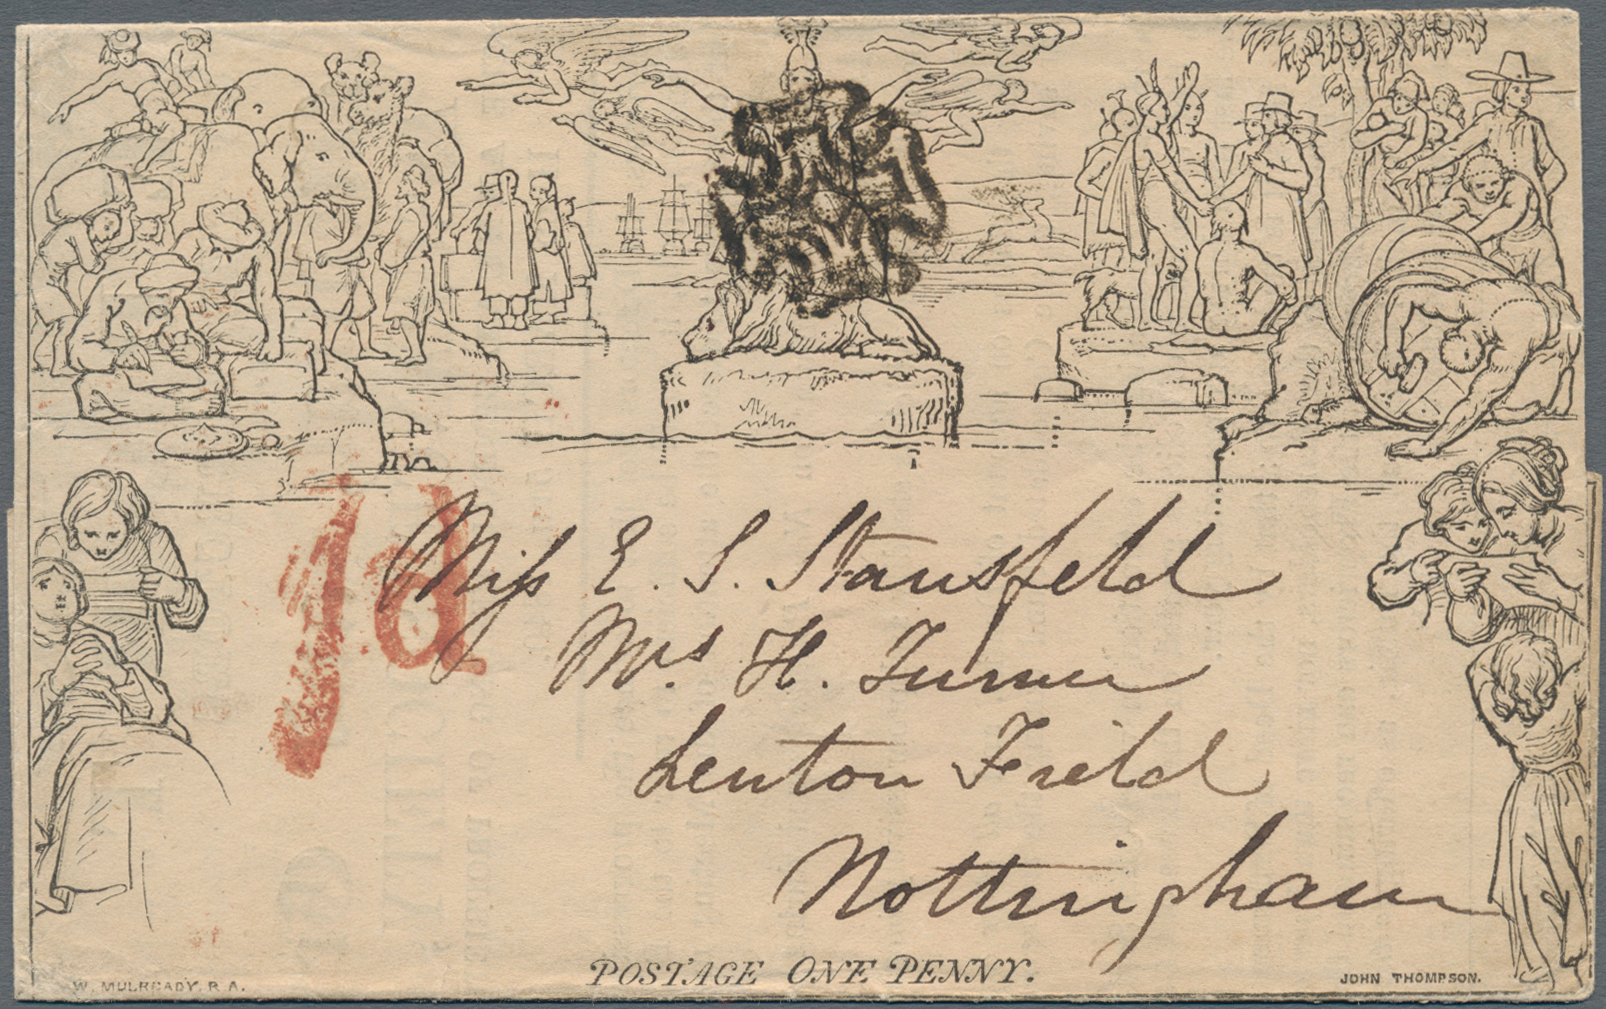 1d
Miss E. S. Stansfeld
Mrs. H. Turner
Lenton Field
Nottingham
POSTAGE ONE PENNY.
W. MULREADY, R.A.
JOHN THOMPSON.